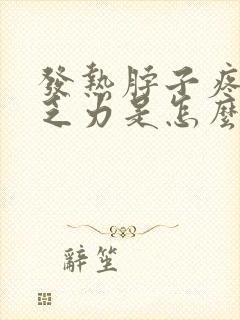 發熱脖子疼
乏力是怎麼
辭笙